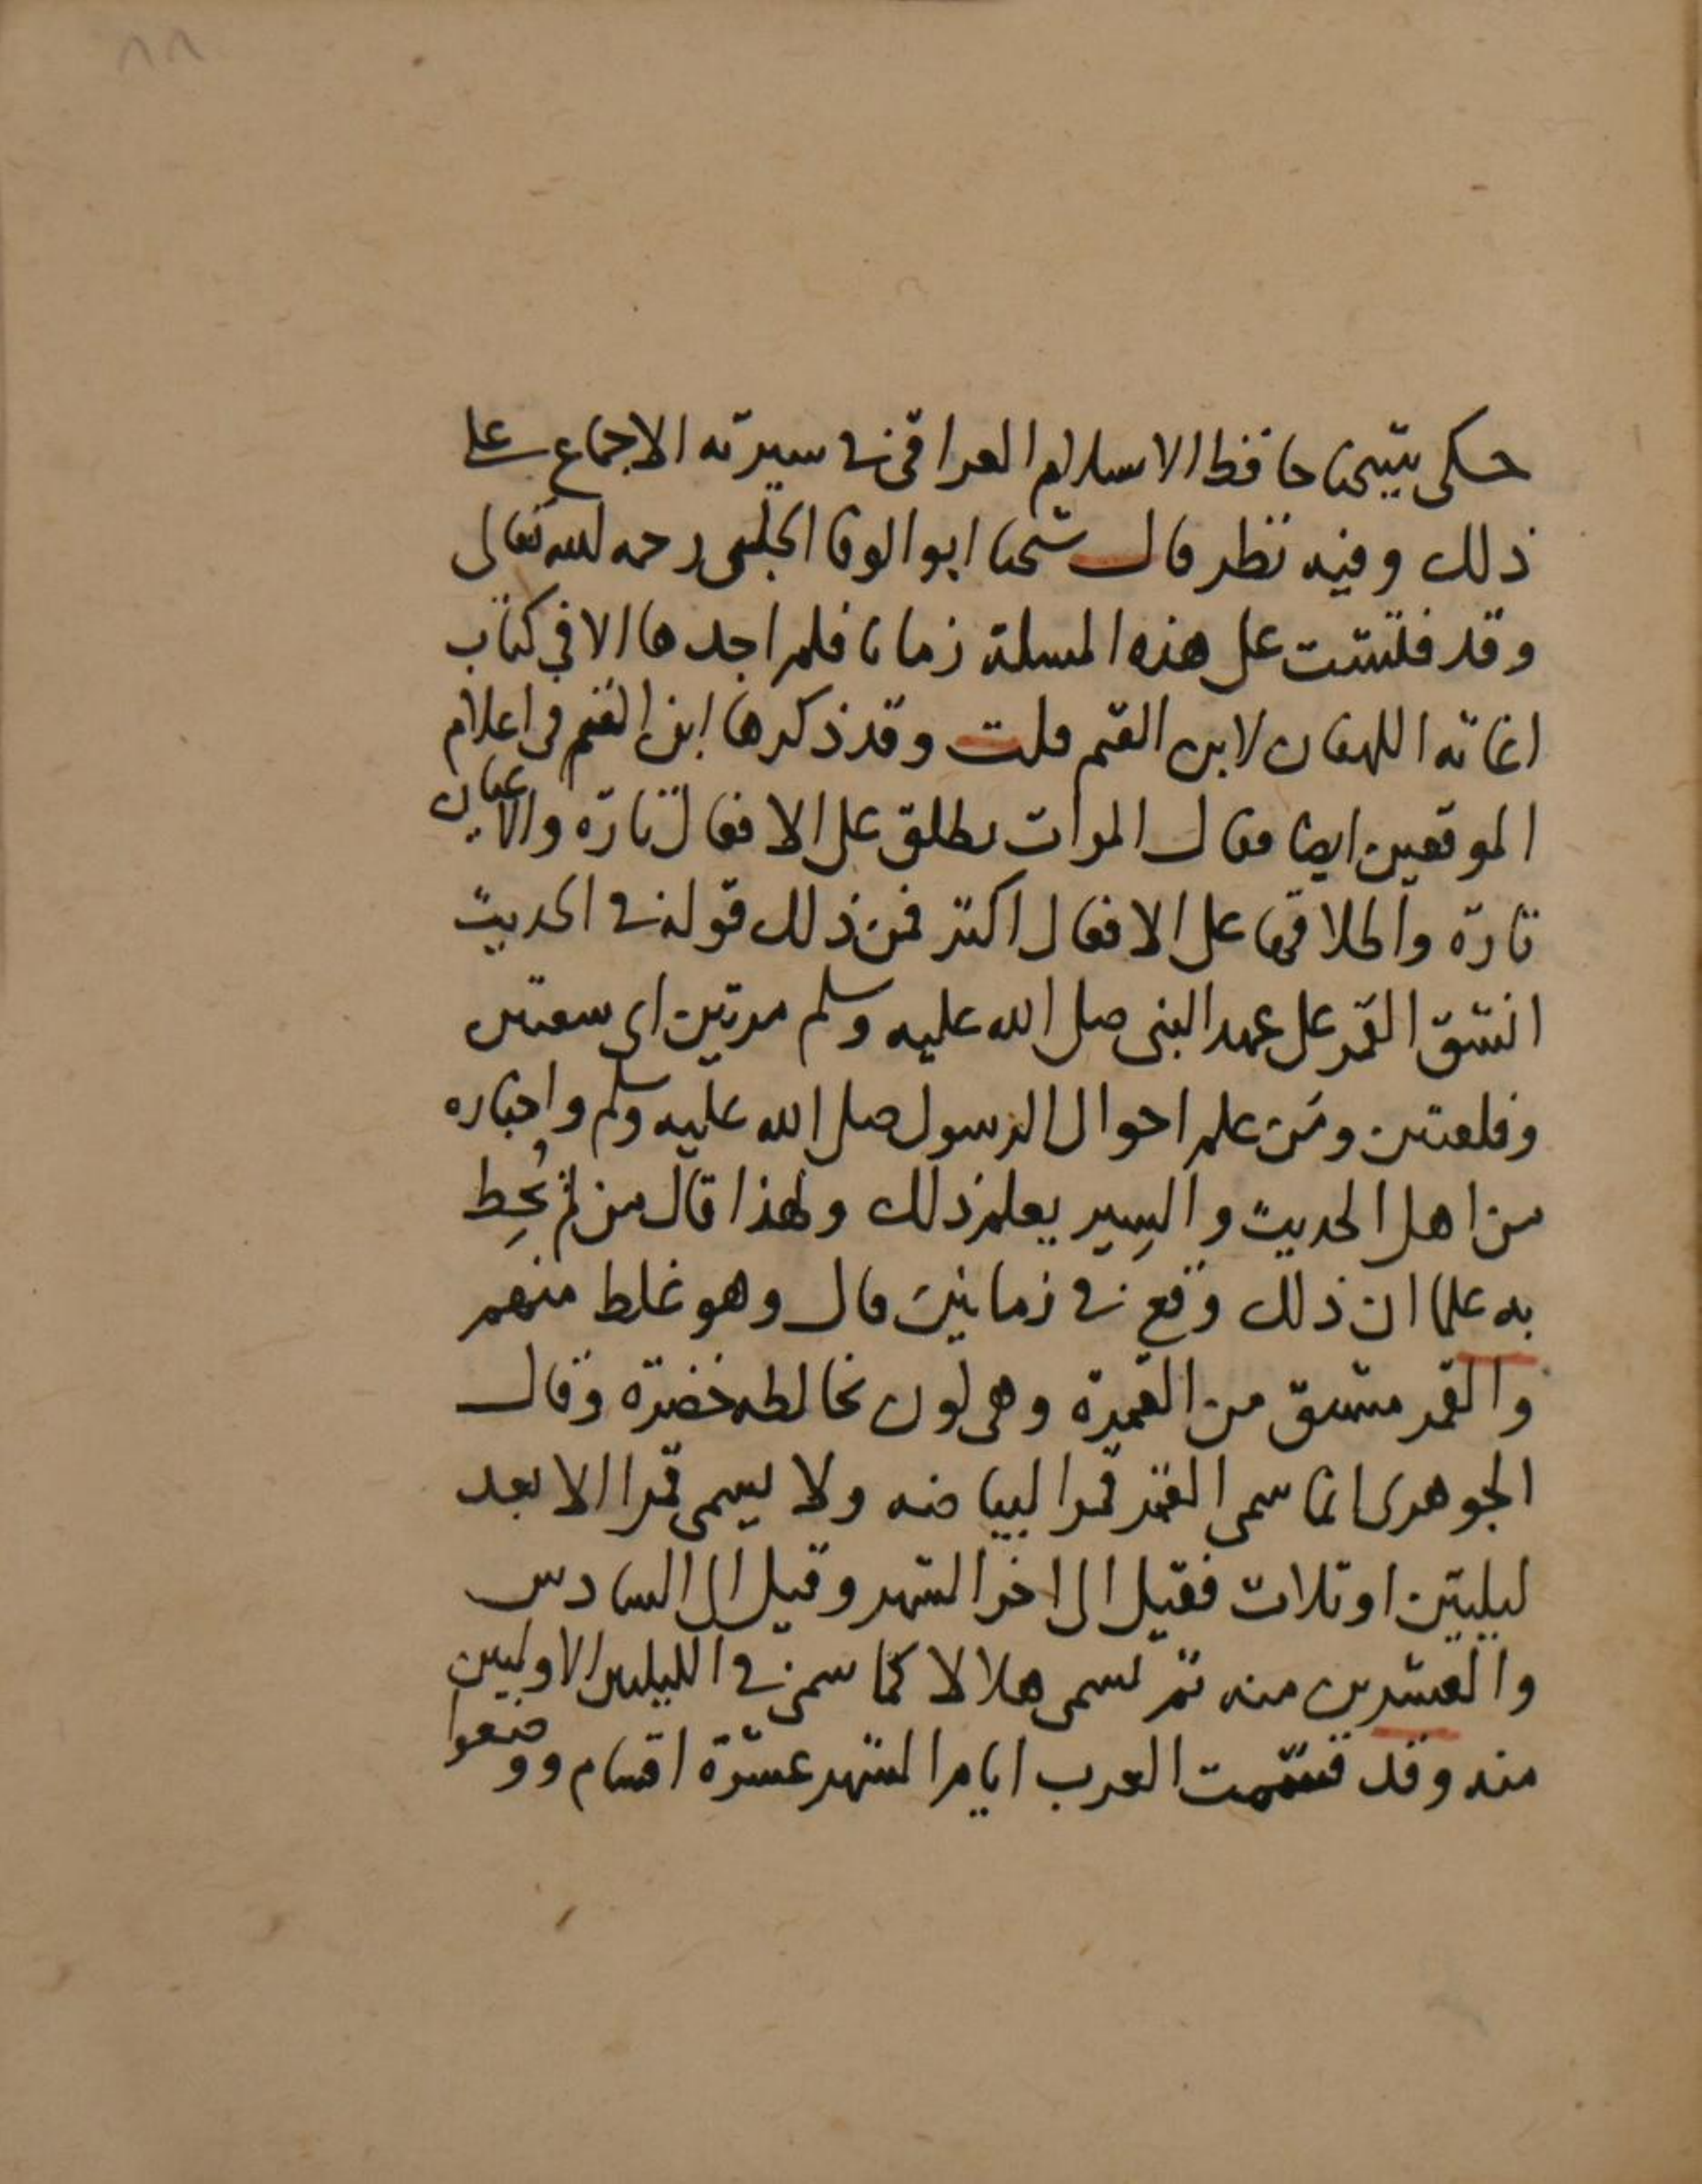 ٨٨
حكى شيخنا حافظ الاسلام العراقي في سيرته الاجماع على
ذلك وفيه نظر قال شيخنا ابو الوفا الحلبى رحمه الله تعالى
وقد فتشت على هذه المسلة زمانا فلم اجدها الا في كتاب
اغاثه اللهفان لابن القيم قلت وقد ذكرها ابن القيم في اعلام
الموقعين ايضا فقال المرات يطلق على الافعال تارة والاعيان
تارة واطلاقها على الافعال اكثر فمن ذلك قوله في الحديث
انشق القمر على عهد النبي صلى الله عليه وسلم مرتين اى شقتين
وفلقتين ومَن علم احوال الرسول صلى الله عليه وسلم واخباره
من اهل الحديث والسِير يعلم ذلك ولهذا قال من لم يُحِط
به علما ان ذلك وقع في زمانين قال وهو غلط منهم
والقمر مشتق من القمرة وهي لون تخالطه خضرة وقال
الجوهرى انما سمى القمر قمرا لبياضه ولا يسمى قمرا الا بعد
ليليتين او ثلاث فقيل الى اخر الشهر وقيل الى السادس
والعشرين منه ثم يسمى هلالا كما سمى في الليلتين الاوليين
منه وقد قسّمت العرب ايام الشهر عشرة اقسام ووضعوا